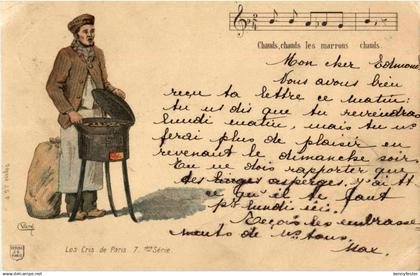 Chauds, chauds les marrons chauds.
Mon cher Edmond
Nous avons bien
reçu ta lettre ce matin.
tu ns dis que tu reviendras
lundi matin, mais tu ns
ferai plus de plaisir en
revenant le dimanche soir.
Tu ne dois rapporter que
des asperges, y a tt
ce qu'il te faut
pr lundi
Reçois les embrasse
ments de ns tous.
Max.
Les Cris de Paris 7. Série